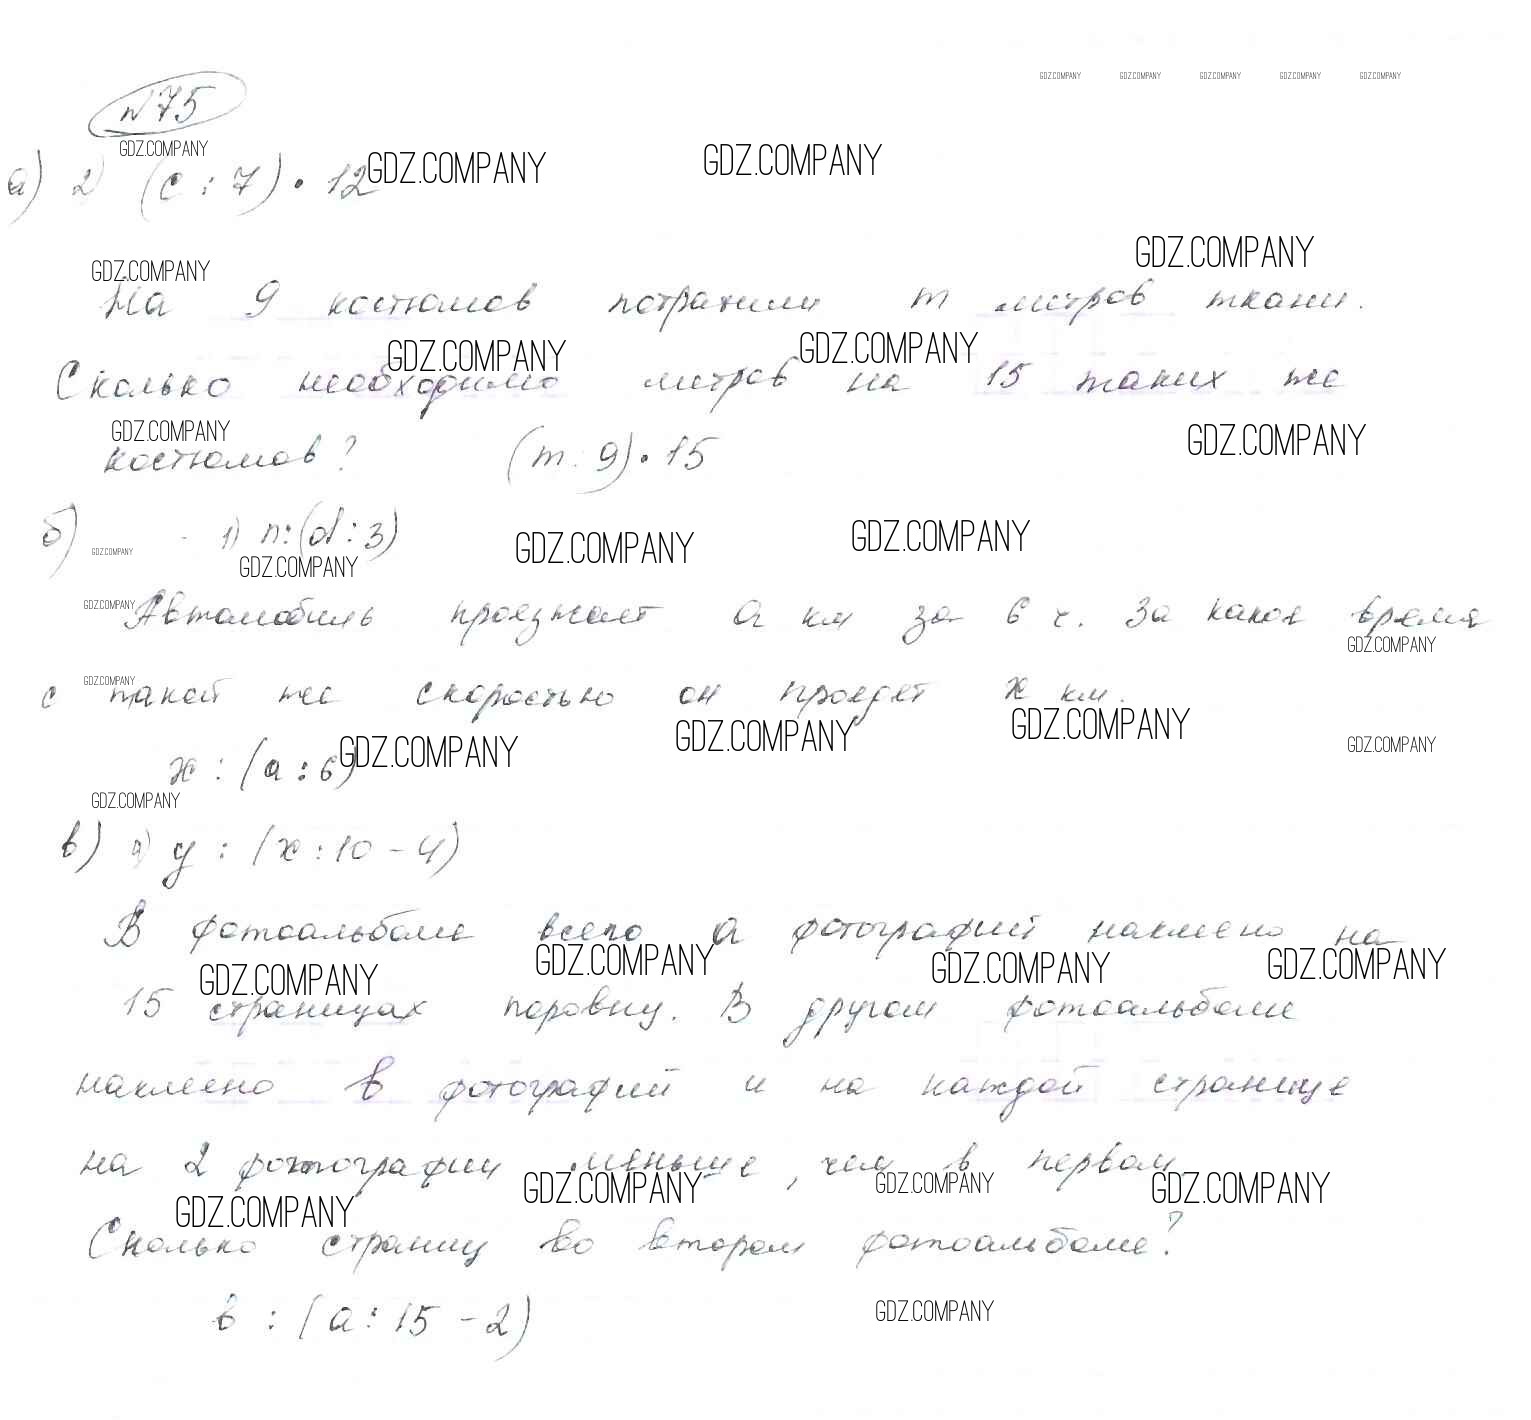 GDZ.COMPANY GDZ.COMPANY GDZ.COMPANY GDZ.COMPANY GDZ.COMPANY
№75
GDZ.COMPANY GDZ.COMPANY GDZ.COMPANY
а) 2) (c : 7) • 12
GDZ.COMPANY
GDZ.COMPANY
На 9 костюмов потратили m метров ткани.
GDZ.COMPANY GDZ.COMPANY
Сколько необходимо метров на 15 таких же
GDZ.COMPANY GDZ.COMPANY
костюмов? (m : 9) • 15
б) 1) n : (d : 3)
GDZ.COMPANY GDZ.COMPANY GDZ.COMPANY GDZ.COMPANY
GDZ.COMPANY
Автомобиль проезжает a км за 6 ч. За какое время
GDZ.COMPANY
GDZ.COMPANY
с такой же скоростью он проедет x км.
GDZ.COMPANY GDZ.COMPANY GDZ.COMPANY GDZ.COMPANY
x : (a : 6)
GDZ.COMPANY
в) y : (x : 10 - 4)
В фотоальбоме всего a фотографий наклеено на
GDZ.COMPANY GDZ.COMPANY GDZ.COMPANY GDZ.COMPANY
15 страницах поровну. В другом фотоальбоме
наклеено b фотографий и на каждой странице
на 2 фотографии меньше, чем в первом
GDZ.COMPANY GDZ.COMPANY GDZ.COMPANY GDZ.COMPANY
Сколько страниц во втором фотоальбоме?
b : (a : 15 - 2)
GDZ.COMPANY